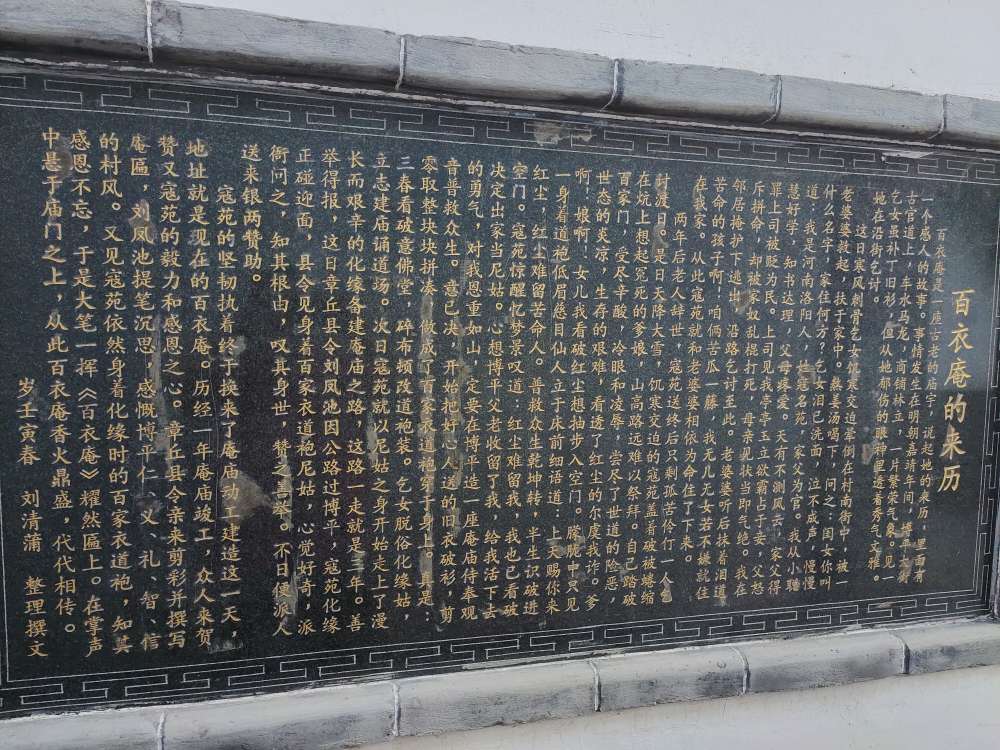 百衣庵的来历
百衣庵是一座古老的庙宇，说起她的来历，里面有
一个感人的故事。事情发生在明朝嘉靖年间，博平大街
古官道上，车水马龙，商铺林立，一片繁荣气象。只见一
乞女虽补丁旧衫，但从她那忧伤的眼神里透着秀气文雅。
她在沿街乞讨。
这日寒风刺骨乞女饥寒交迫晕倒在村南街中，被一
老婆婆救起，扶于家中。熬姜汤喝下，问之：闺女你叫
什么名字，家住何方？乞女泪已洗面，泣不成声，慢慢
道：我是河南洛阳人，姓寇名苑，家父为官，我从小聪
慧好学，知书达理，父母疼爱。天有不测风云，家父得
罪上司被贬为民。上司见我亭亭玉立欲霸占于妾，父怒
斥拼命，却被家奴乱棍打死，母亲见状当即气绝。我在
邻居掩护下逃出，沿路乞讨至此。老婆婆听后抹着泪道
苦命的孩子啊！咱俩苦瓜一藤，我无儿无女若不嫌就住
在我家。从此寇苑就和老婆婆相依为命住了下来。
两年后老人辞世，寇苑送终后只剩孤苦伶仃一人乞
讨渡日。一日是日天降大雪，饥寒父迫的寇苑盖着破被蜷缩
在炕上想起冤死的爹娘，山高路远难以祭拜。自己踏破
百家门，受尽辛酸，冷眼和凌辱，尝尽了世道的险恶，
世态的炎凉，生存的艰难，看透了红尘的尔虞我诈。爹
啊，娘啊，女儿我看破红尘想抽步入空门。朦胧中只见
一身着道袍低眉慈目仙人立于床前细语道：上天赐你来
红尘，红尘难留苦命人。普救众生乾坤转，半生识破进
空门。寇苑惊醒忆梦景叹道：红尘难留我，我也已看破
决定出家当尼姑。心想博平父老收留了我，给我活下去
的勇气，对我恩重如山，一定要在博平造一座庵庙侍奉观
音普救众生。意已决，开始把好心人送的旧衣破衫，剪
零取整块块拼凑，做成了百家衣道袍穿于身上。真是：
三春看破意佛堂，碎布顿改道袍装。乞女脱俗化缘姑，
立志建庙诵道场。次日寇苑就以尼姑之身开始走上了漫
长而艰辛的化缘备建庵庙之路，这路一走就是三年。善
举得报，这日章丘县令刘凤池因公路过博平，寇苑化缘
正碰迎面，县令见身着百家衣道袍尼姑，心觉好奇，派
衙问之，知其根由，叹其身世，赞之善举。不日便派人
送来银两赞助。
寇苑的坚韧执着终于换来了庵庙动工建造这一天，
地址就是现在的百衣庵。历经一年庵庙竣工，众人来贺
赞又寇苑的毅力和感恩之心。章丘县令亲来剪彩并撰写
庵匾，刘凤池提笔沉思，感慨博平仁、义、礼、智、信
的村风。又见寇苑依然身着化缘时的百家衣道袍，知其
感恩不忘，于是大笔一挥《百衣庵》耀然匾上。在掌声
中悬于庙门之上，从此百衣庵香火鼎盛，代代相传。
岁壬寅春 刘清蒲 整理撰文